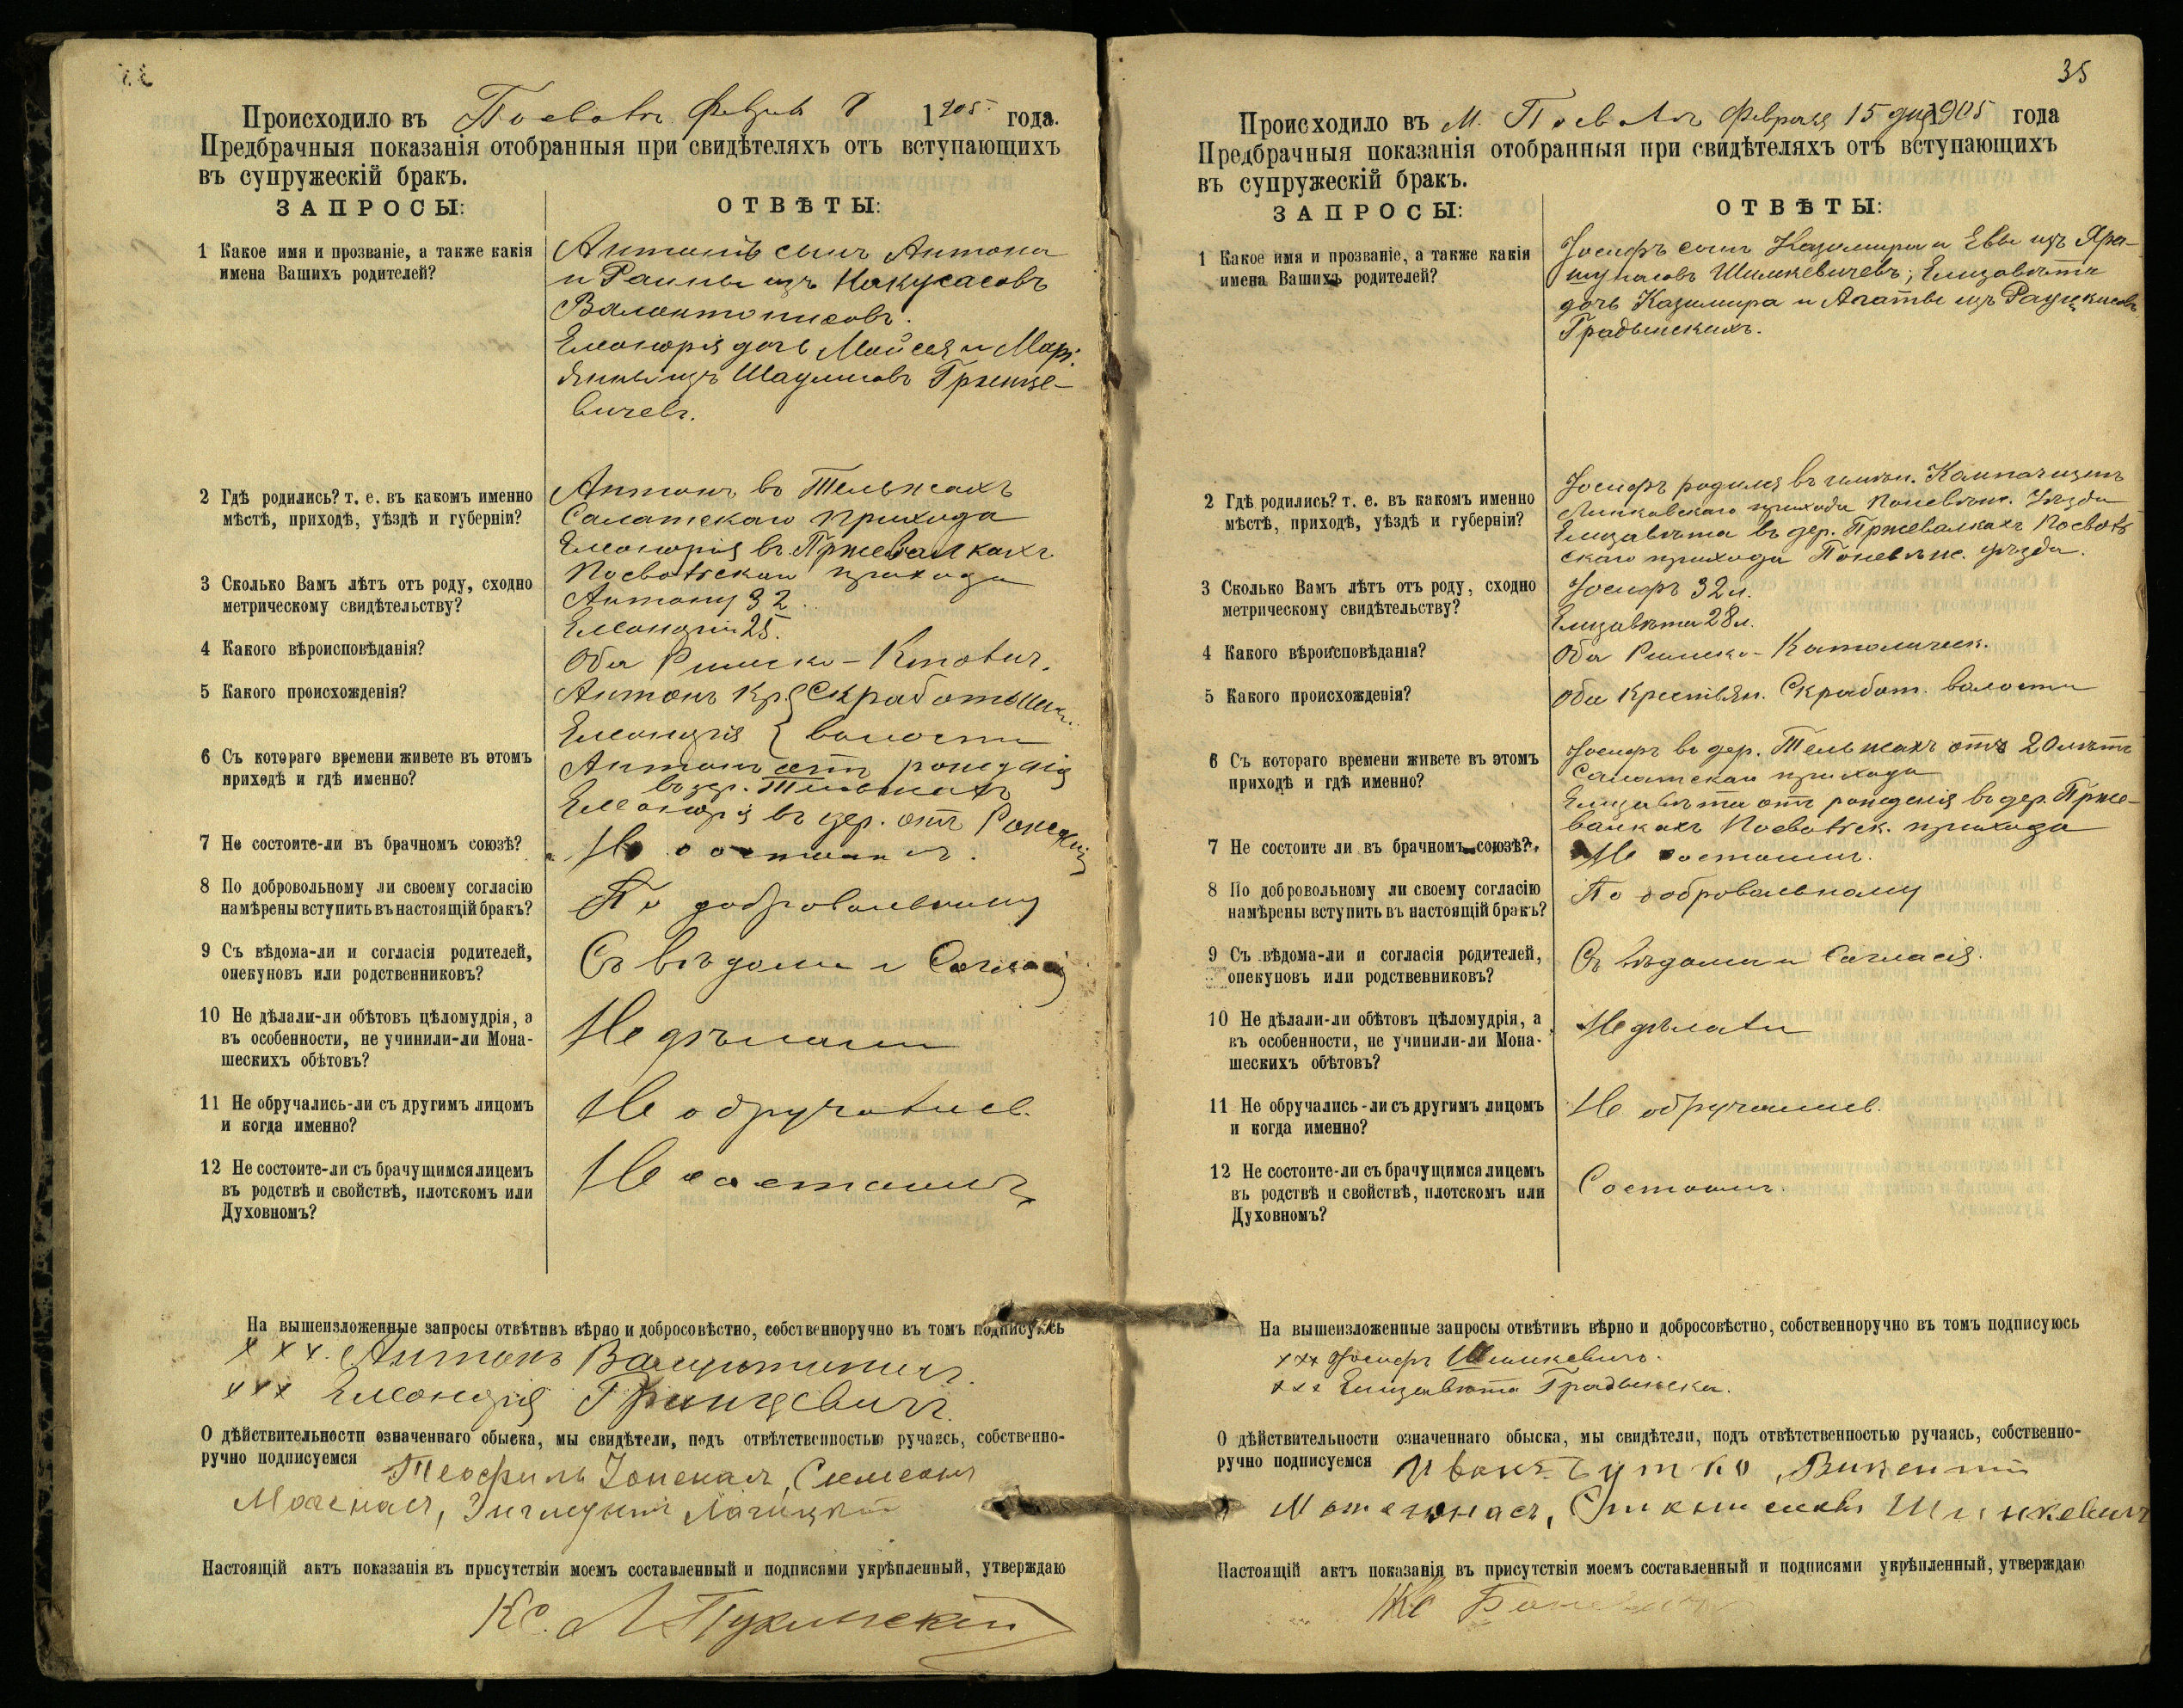 Происходило въ Посволѣ Февраля 8 1905 года.
Предбрачныя показанія отобранныя при свидѣтеляхъ отъ вступающихъ
въ супружескій бракъ.
ЗАПРОСЫ: ОТВѢТЫ:
1 Какое имя и прозваніе, а также какія
имена Вашихъ родителей?
Антоній сынъ Антона
и Раины изъ
Елеонора дочь Мойсея и Марі-
янны изъ Грынце-
вичевъ.
2 Гдѣ родились? т. е. въ какомъ именно
мѣстѣ, приходѣ, уѣздѣ и губерніи?
Антонъ въ Тельжахъ
Салатскаго прихода
Елеонора въ Пржевалкахъ
Посвольскаго прихода
3 Сколько Вамъ лѣтъ отъ роду, сходно
метрическому свидѣтельству?
Антону 32
25.
4 Какого вѣроисповѣданія?
Оба Римско-Католич.
5 Какого происхожденія?
Антонъ Кр. Скработышк.
волости
6 Съ котораго времени живете въ этомъ
приходѣ и гдѣ именно?
Антонъ отъ рожденія
въ дер. Тельжахъ
въ дер. отъ рожденія
7 Не состоите-ли въ брачномъ союзѣ?
Не состоимъ.
8 По добровольному ли своему согласію
намѣрены вступить въ настоящій бракъ?
По добровольному
9 Съ вѣдома-ли и согласія родителей,
опекуновъ или родственниковъ?
Съ вѣдома и Согласія
10 Не дѣлали-ли обѣтовъ цѣломудрія, а
въ особенности, не учинили-ли Мона-
шескихъ обѣтовъ?
Не дѣлали
11 Не обручались-ли съ другимъ лицомъ
и когда именно?
Не обручались.
12 Не состоите-ли съ брачущимся лицемъ
въ родствѣ и свойствѣ, плотскомъ или
Духовномъ?
Не состоимъ
На вышеизложенные запросы отвѣтивъ вѣрно и добросовѣстно, собственноручно въ томъ подписуюсь
xxx. Антонъ
xxx Гринцевичъ.
О дѣйствительности означеннаго обыска, мы свидѣтели, подъ отвѣтственностью ручаясь, собственно-
ручно подписуемся Теофиль
Настоящій актъ показанія въ присутствіи моемъ составленный и подписями укрѣпленный, утверждаю
Кс.
35
Происходило въ м. Посволѣ Февраля 15 дня 1905 года
Предбрачныя показанія отобранныя при свидѣтеляхъ отъ вступающихъ
въ супружескій бракъ.
ЗАПРОСЫ: ОТВѢТЫ:
1 Какое имя и прозваніе, а также какія
имена Вашихъ родителей?
Іосифъ сынъ Казимира и Евы изъ Яра-
шунасовъ Шимкевичевъ; Елизавѣта
дочь Казимира и Агаты изъ
Градынскихъ.
2 Гдѣ родились? т. е. въ какомъ именно
мѣстѣ, приходѣ, уѣздѣ и губерніи?
Іосифъ родился въ
Линковскаго прихода Поневѣж. Уѣзда
Елизавѣта въ дер. Пржевалкахъ Посволь-
скаго прихода Поневѣж. уѣзда.
3 Сколько Вамъ лѣтъ отъ роду, сходно
метрическому свидѣтельству?
Іосифъ 32 л.
Елизавѣта 28 л.
4 Какого вѣроисповѣданія?
Оба Римско-Католическ.
5 Какого происхожденія?
Оба Крестьян. Скработ. волости
6 Съ котораго времени живете въ этомъ
приходѣ и гдѣ именно?
Іосифъ въ дер. Тельжахъ отъ 20 лѣтъ
Салатскаго прихода
Елизавѣта отъ рожденія въ дер. Прже-
валкахъ Посвольск. прихода
7 Не состоите ли въ брачномъ союзѣ?
Не состоимъ.
8 По добровольному ли своему согласію
намѣрены вступить въ настоящій бракъ?
По добровольному
9 Съ вѣдома-ли и согласія родителей,
опекуновъ или родственниковъ?
Съ вѣдома и Согласія.
10 Не дѣлали-ли обѣтовъ цѣломудрія, а
въ особенности, не учинили-ли Мона-
шескихъ обѣтовъ?
Не дѣлали
11 Не обручались-ли съ другимъ лицомъ
и когда именно?
Не обручались.
12 Не состоите-ли съ брачущимся лицемъ
въ родствѣ и свойствѣ, плотскомъ или
Духовномъ?
Состоимъ.
На вышеизложенные запросы отвѣтивъ вѣрно и добросовѣстно, собственноручно въ томъ подписуюсь
xxx Іосифъ Шимкевичъ.
xxx Елизавѣта Градынска.
О дѣйствительности означеннаго обыска, мы свидѣтели, подъ отвѣтственностью ручаясь, собственно-
ручно подписуемся Иванъ Бутко, Викентій
Шимкевичъ
Настоящій актъ показанія въ присутствіи моемъ составленный и подписями укрѣпленный, утверждаю
Кс